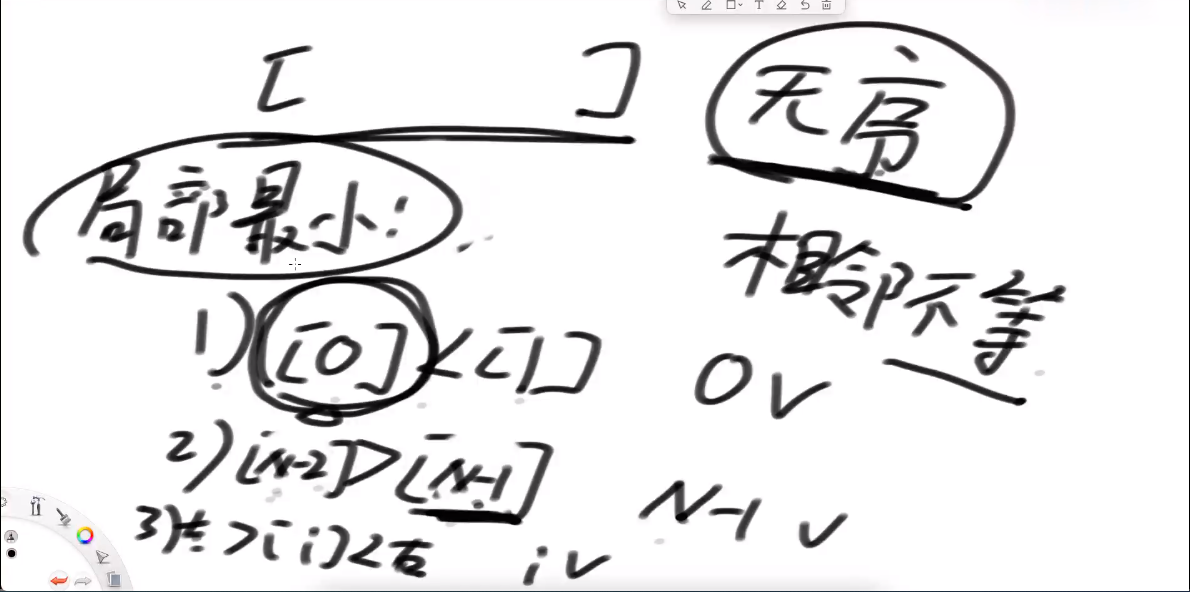 [ ] 无序
局部最小!
相邻不等
1) [0] < [1]
0 v
2) [N-2] > [N-1]
N-1 v
3) 左 > [i] < 右
i v